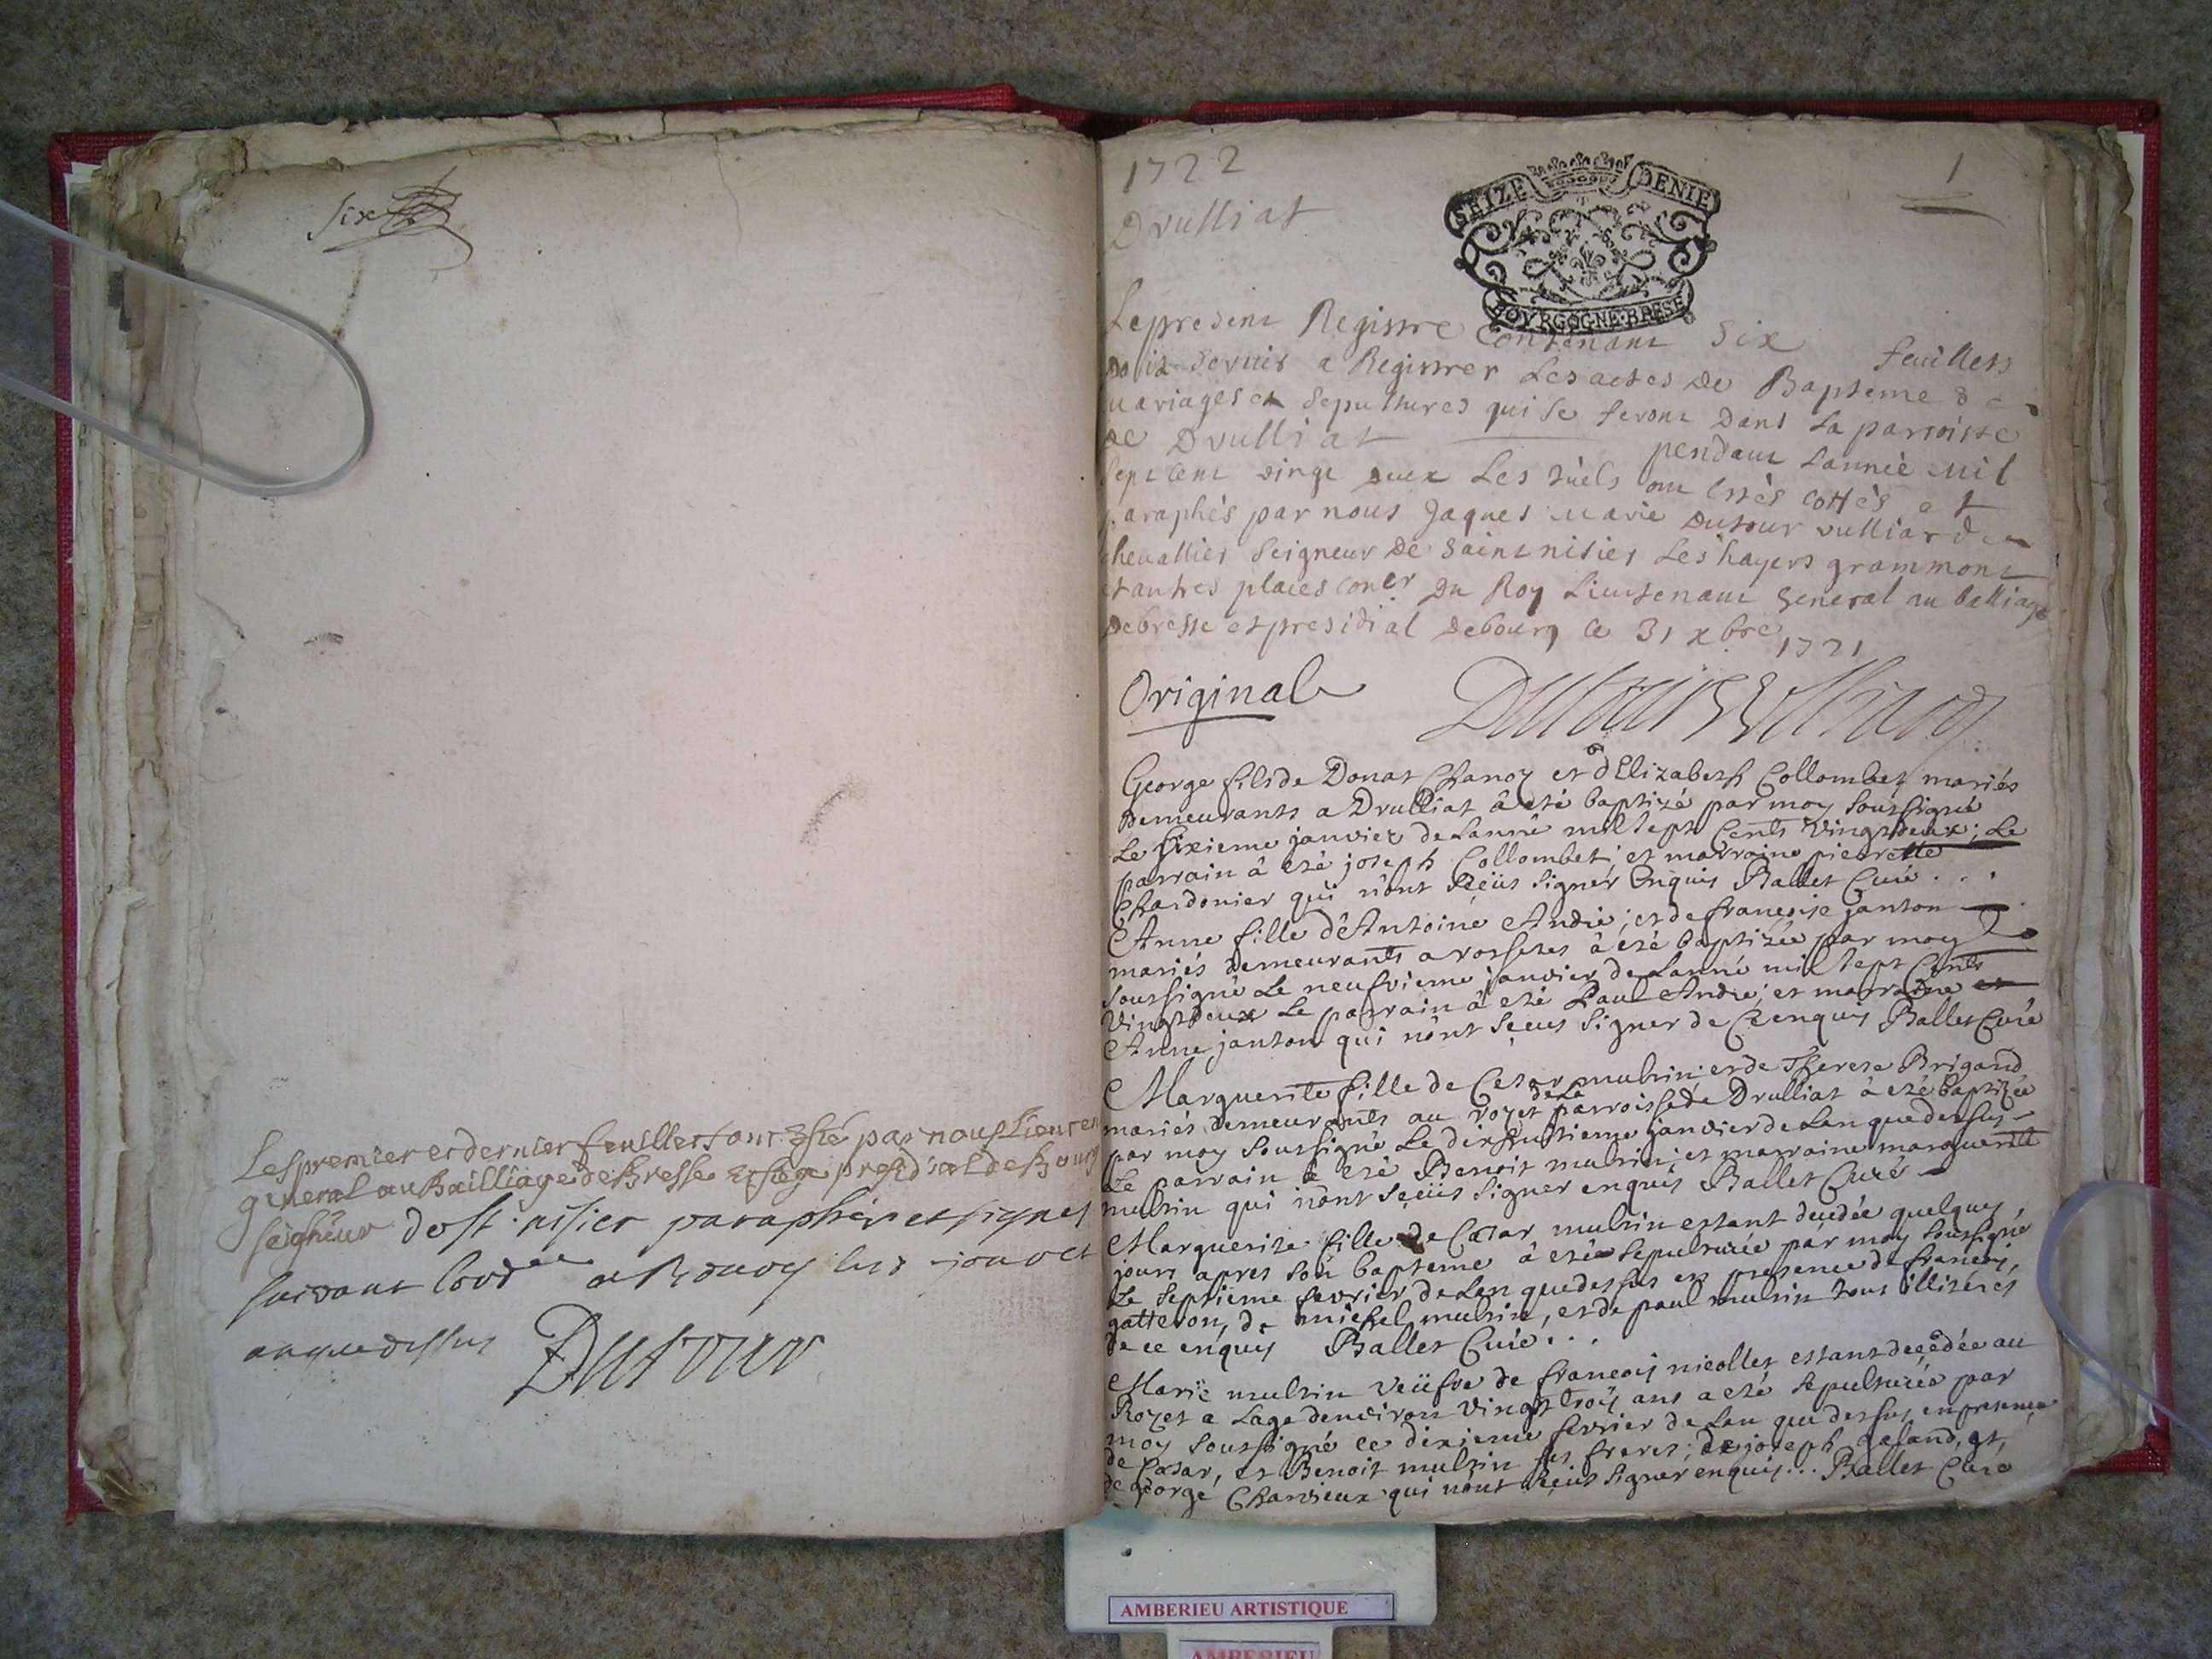 six
Les premier et dernier feuillets ont esté par nous Lieuten
general au Bailliage de Bresse et siege presidial de Bourg
seigneur de st. nisier paraphés et signés
suivant lord^ce a Bourg les jour et
an que dessus Dutour
1722
1
Drulliat
SEIZE DENIE
BOVRGOGNE·BRESE
Le present Registre Contenant six feuillets
doit servir a Registrer Les actes de Bapteme
mariages et sepultures qui se feront Dans La parroisse
de Drulliat pendant Lannée mil
sept cent vingt deux Les quels ont estés cottés et
paraphés par nous Jaques marie Dutour vulliard
chevallier seigneur De saint nisier Les hayers grammont
et autres places con^er Du Roy Lieutenant General au balliage
de bresse et presidial de bourg ce 31 xbre 1721
Original Dutour Vulliard
George fils de Donat Chanoz et d'Elizabeth Collombet mariés
Demeurants a Drulliat â eté baptizé par moy soussigné
Le sixieme janvier de Lanné mil sept Cents vingt deux; Le
parrain â eté joseph Collombet; et marraine pierrette
Chardonier qui n'ont sçeüs signer Enquis Ballet Curé . . .
Anne fille d'Antoine Andrè; et de françoise janton
mariés demeurants a rossetes â eté baptizée par moy
soussigné Le neufvieme janvier de Lanné mil sept Cents
Vingt deux Le parrain â eté Paul Andrè; et marraine
Anne janton qui n'ont sçeus signer de Ce enquis Ballet Curé
Marguerite fille de Cesar mulrin; et de Therese Brigand
mariés demeurants au royet de La parroisse de Drulliat â eté baptizée
par moy soussigné Le dixhuitieme janvier de Lan que dessus
Le parrain â eté Benoit mulrin; et marraine marguerite
mulrin qui n'ont sçeüs signer enquis Ballet Curé
Marguerite fille de Cæsar mulrin estant decedée quelques
jours apres son bapteme â eté sepulturée par moy soussigné
Le septieme fevrier de Lan que dessus en presence de françois
gatteron, de michel mulrin, et de paul mulrin tous illiterés
de ce enquis Ballet Curé . . .
Marie mulrin veüfve de françois nicollet estant decedée au
Royet a Lage denviron vingt trois ans a eté sepulturée par
moy soussigné ce dixieme fevrier de Lan que dessus en presence
de Cæsar, et Benoit mulrin ses freres; de joseph et
de george Charvieux qui n'ont sçeüs signer enquis . . . Ballet Curé
AMBERIEU ARTISTIQUE
AMBERIEU